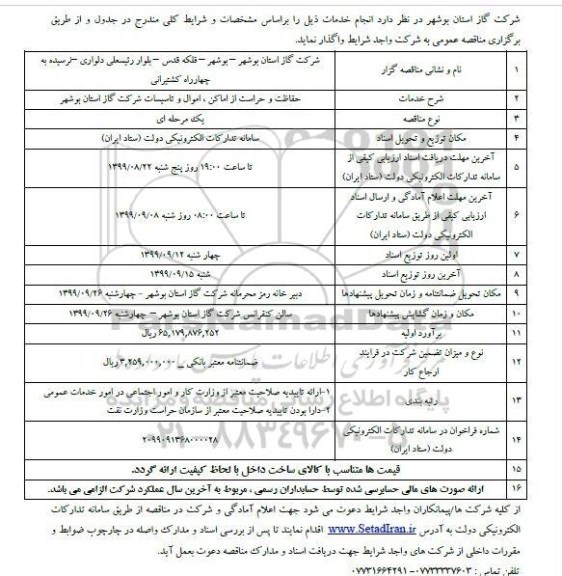 شرکت گاز استان بوشهر در نظر دارد انجام خدمات ذیل را براساس مشخصات و شرایط کلی مندرج در جدول و از طریق
برگزاری مناقصه عمومی به شرکت واجد شرایط واگذار نماید.
۱ نام و نشانی مناقصه گزار شرکت گاز استان بوشهر – بوشهر – فلکه قدس – بلوار رئیسعلی دلواری – نرسیده به
چهارراه کشتیرانی
۲ شرح خدمات حفاظت و حراست از اماکن ، اموال و تاسیسات شرکت گاز استان بوشهر
۳ نوع مناقصه یک مرحله ای
۴ مکان توزیع و تحویل اسناد سامانه تدارکات الکترونیکی دولت (ستاد ایران)
۵ آخرین مهلت دریافت اسناد ارزیابی کیفی از
سامانه تدارکات الکترونیکی دولت (ستاد ایران) تا ساعت ۱۹:۰۰ روز پنج شنبه ۱۳۹۹/۰۸/۲۲
۶ آخرین مهلت اعلام آمادگی و ارسال اسناد
ارزیابی کیفی از طریق سامانه تدارکات
الکترونیکی دولت (ستاد ایران) تا ساعت ۰۸:۰۰ روز شنبه ۱۳۹۹/۰۹/۰۸
۷ اولین روز توزیع اسناد چهار شنبه ۱۳۹۹/۰۹/۱۲
۸ آخرین روز توزیع اسناد شنبه ۱۳۹۹/۰۹/۱۵
۹ مکان تحویل ضمانتنامه و زمان تحویل پیشنهادها دبیر خانه رمز محرمانه شرکت گاز استان بوشهر - چهارشنبه ۱۳۹۹/۰۹/۲۶
۱۰ مکان و زمان گشایش پیشنهادها سالن کنفرانس شرکت گاز استان بوشهر – چهارشنبه ۱۳۹۹/۰۹/۲۶
۱۱ برآورد اولیه ۶۵,۱۷۹,۸۷۶,۲۵۲ ریال
۱۲ نوع و میزان تضمین شرکت در فرایند
ارجاع کار ضمانتنامه معتبر بانکی _ ۳,۲۵۹,۰۰۰,۰۰۰ ریال
۱۳ رتبه بندی ۱-ارائه تاییدیه صلاحیت معتبر از وزارت کار و امور اجتماعی در امور خدمات عمومی
۲-دارا بودن تاییدیه صلاحیت معتبر از سازمان حراست وزارت نفت
۱۴ شماره فراخوان در سامانه تدارکات الکترونیکی
دولت (ستاد ایران) ۲۰۹۹۰۹۱۳۶۸۰۰۰۰۲۸
۱۵ قیمت ها متناسب با کالای ساخت داخل با لحاظ کیفیت ارائه گردد.
۱۶ ارائه صورت های مالی حسابرسی شده توسط حسابداران رسمی ، مربوط به آخرین سال عملکرد شرکت الزامی می باشد.
از کلیه شرکت ها/پیمانکاران واجد شرایط دعوت می شود جهت اعلام آمادگی و شرکت در مناقصه از طریق سامانه تدارکات
الکترونیکی دولت به آدرس www.SetadIran.ir اقدام نمایند تا پس از بررسی اسناد و مدارک واصله در چارچوب ضوابط و
مقررات داخلی از شرکت های واجد شرایط جهت دریافت اسناد و مدارک مناقصه دعوت بعمل آید.
تلفن تماس : ۰۷۷۳۳۳۳۷۶۰۳-۰۷۷۳۱۶۶۴۲۹۱